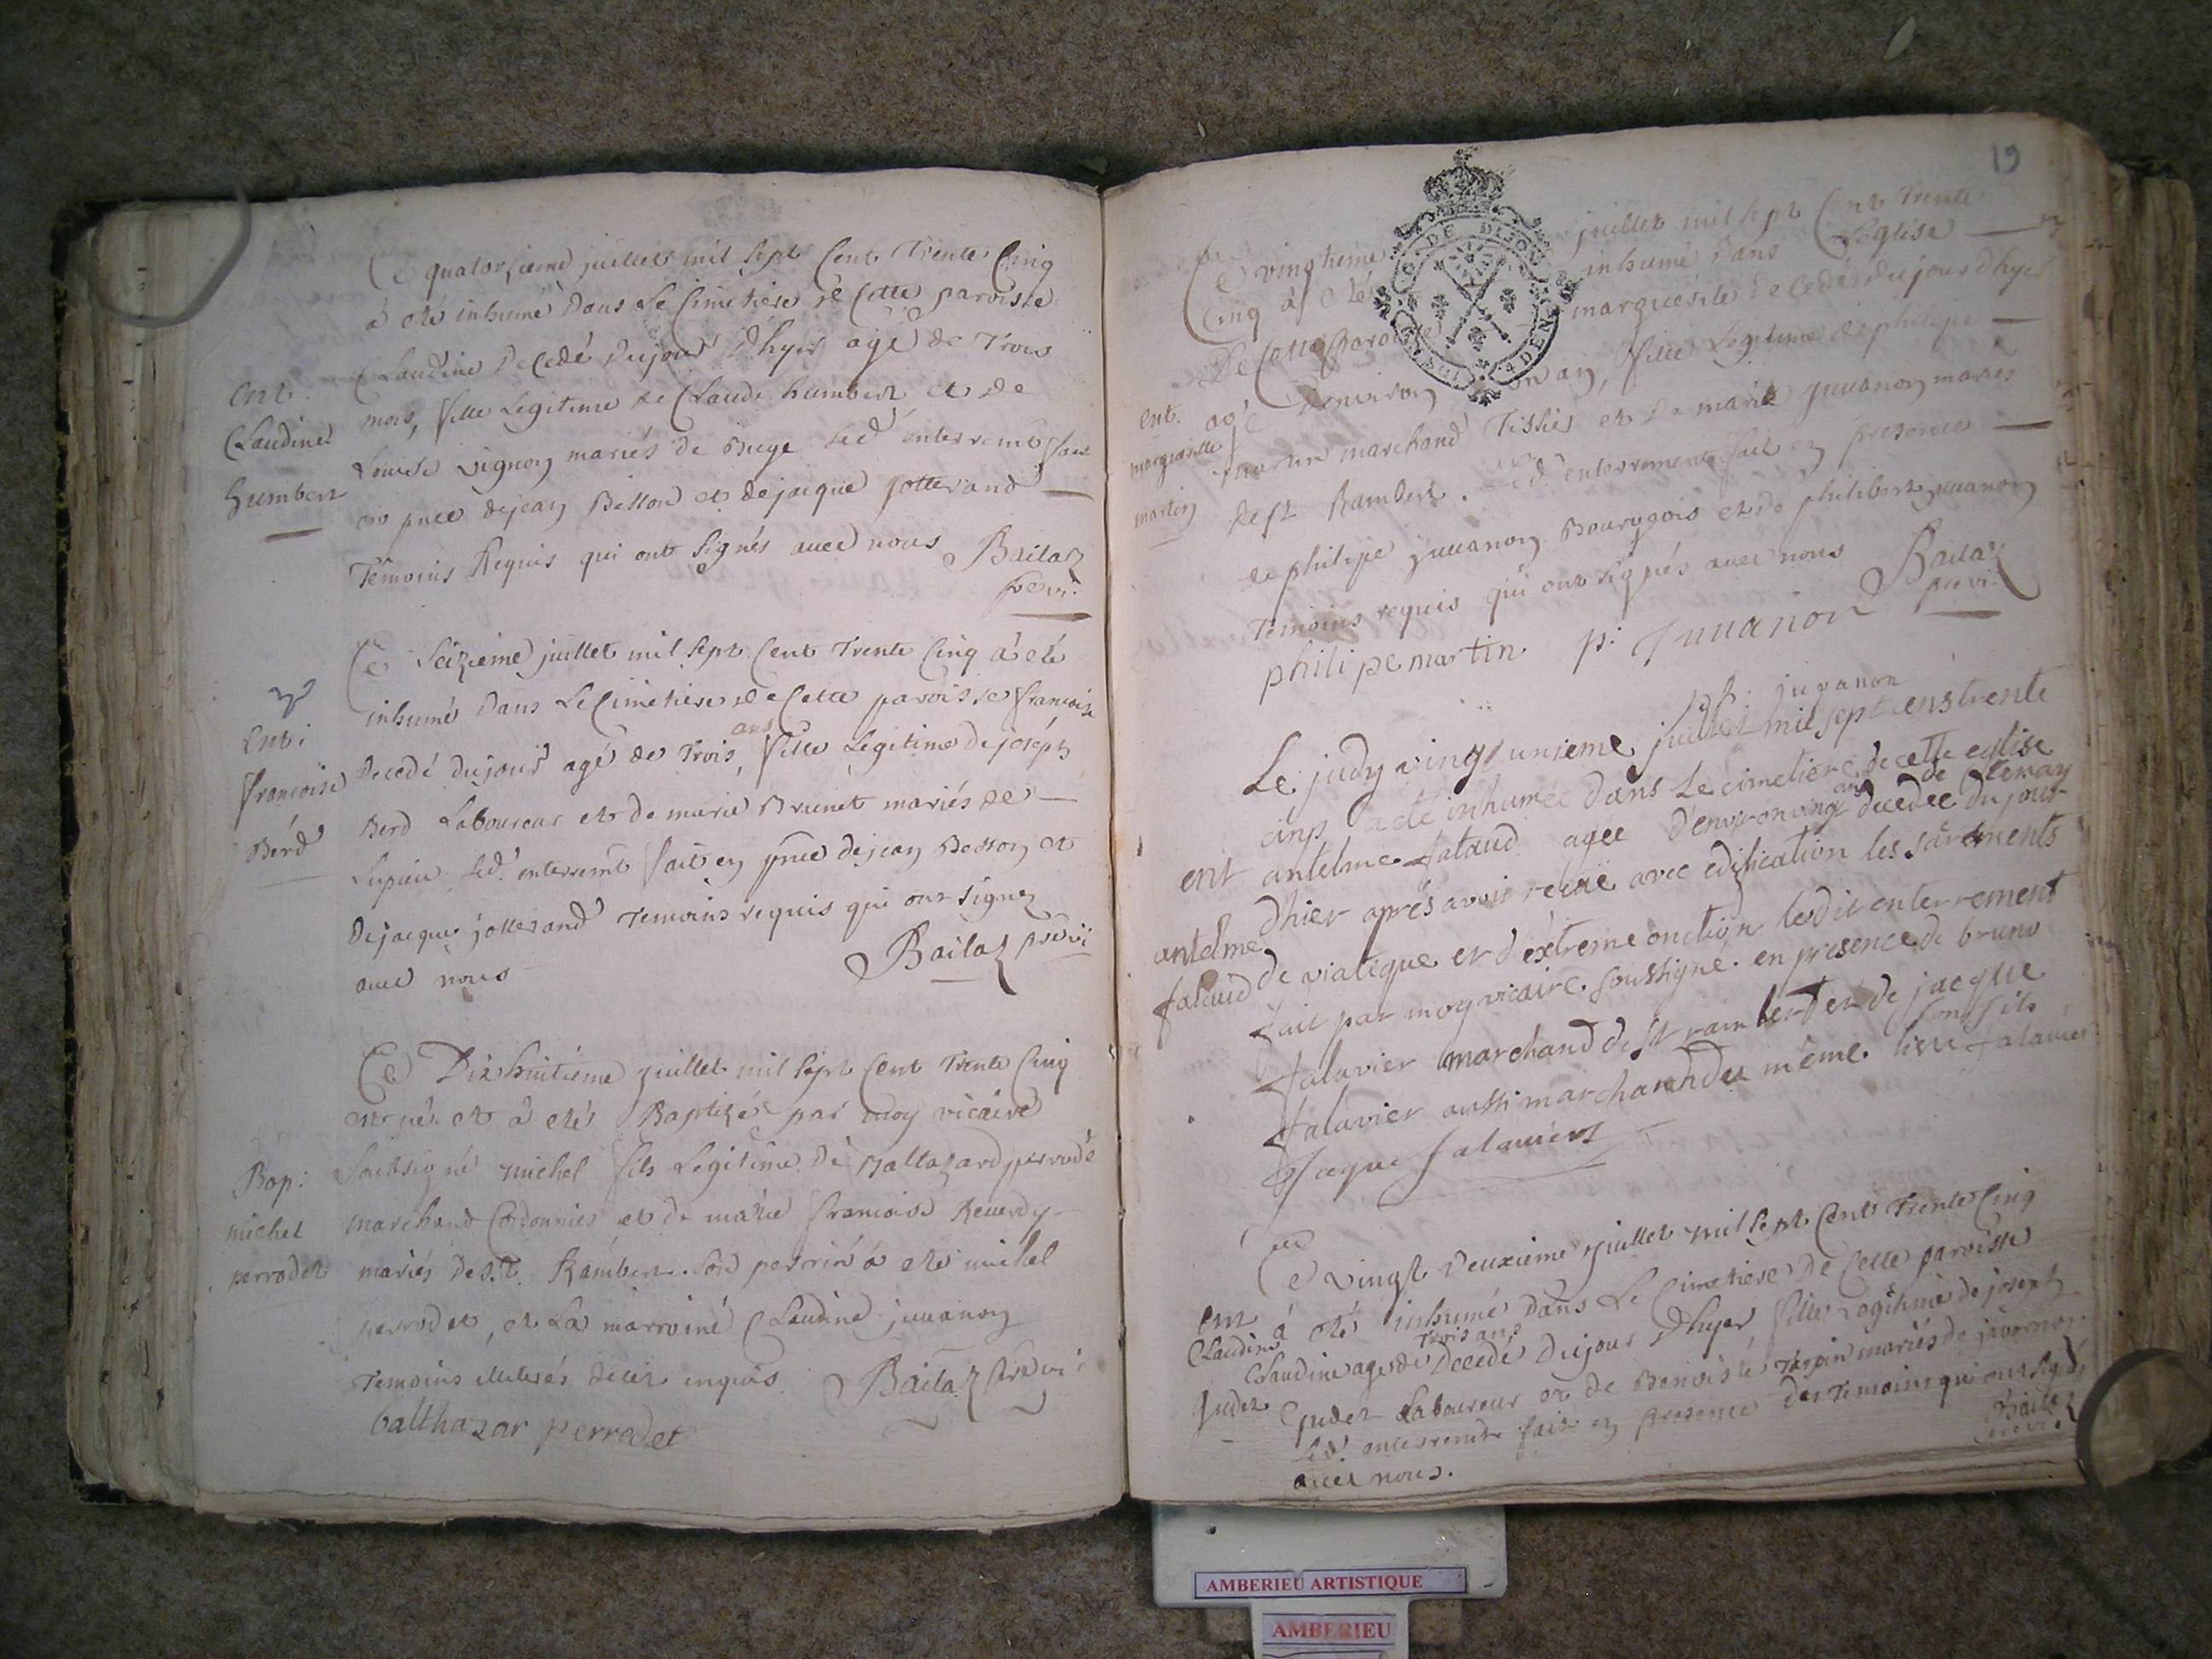 Ce quatorzieme juillet mil sept Cent Trente Cinq
à eté inhumé Dans Le Cimetiere de Cette paroisse
Claudine Decedé Dujour D'hyer agé de Trois
mois, fille Legitime de Claude humbert et de
Louise vignon mariés de Buge led. enterremt fait
en pnce dejean Besson et dejacque jotterand
Temoins Requis qui ont signés avec nous Bailaz
pre vi.
Ent.
Claudine
humbert
Ce Seizieme juillet mil sept Cent Trente Cinq à eté
inhumé Dans Le Cimetiere de Cette paroisse francoise
Decedé dujour agé de Trois ans, fille Legitime dejoseph
Berd Laboureur et de marie Brunet mariés de
Lupieu led. enterremt fait en pnce dejean Besson et
dejacque jotterand Temoins requis qui ont signez
avec nous Bailaz pre vi
Ent:
francoise
Berd
Ce Dix huitieme juillet mil sept Cent Trente Cinq
est né et à eté Baptizé par moy vicaire
Soubsigné michel fils Legitime De Baltazard perrodet
marchand Cordonnier et de marie francoise Reverdy
mariés De St. Rambert. Son parrin à eté michel
perrodet, et La marroine Claudine juvanon
Temoins illiterés de ce enquis. Bailaz pre vi
balthazar perrodet
Bap:
michel
perrodet
19
G. DE DIJON
4 DEN
Ce vingtieme juillet mil sept Cent Trente
Cinq à eté inhumé Dans L'eglise
De Cette paroisse marguerite decedé Dujour d'hyer
agé Denviron un an, fille Legitime de philipe
martin marchand Tissier et De marie juvanon mariés
de St Rambert. Led. enterrement fait en presence
de philipe juvanon Bourgeois et de philibert juvanon
Temoins requis qui ont signés avec nous Bailaz
pre vi.
philipe martin p: Juvanon
ph. juvanon
Ent.
marguerite
martin
Le judy vingt unieme juillet mil sept cens trente
cinq a eté inhumée dans le cimetiere de cette eglise
antelme falaud agée d'environ vingt ans decedée de Tenay du jour
d'hier aprés avoir recue avec edification les sacrements
de viatique et d'extreme onction ledit enterrement
fait par moy vicaire soussigné. en presence de bruno
falavier marchand de St rambert et de jacque
falavier aussi marchand du même lieu son fils falavier
Jacque falavier
ent
antelme
falaud
Ce vingt Deuxieme juillet mil sept Cent Trente Cinq
à eté inhumé Dans Le Cimetiere De Cette paroisse
Claudine agée de Trois ans Decedé Dujour D'hyer fille Legitime de joseph
Judet Laboureur et de Benoiste Tarpin mariés de javornoz.
Led. enterremt fait en presence des Temoins qui ont signés
avec nous. Bailaz
pre vi
Ent
Claudine
Judet
AMBERIEU ARTISTIQUE
AMBERIEU